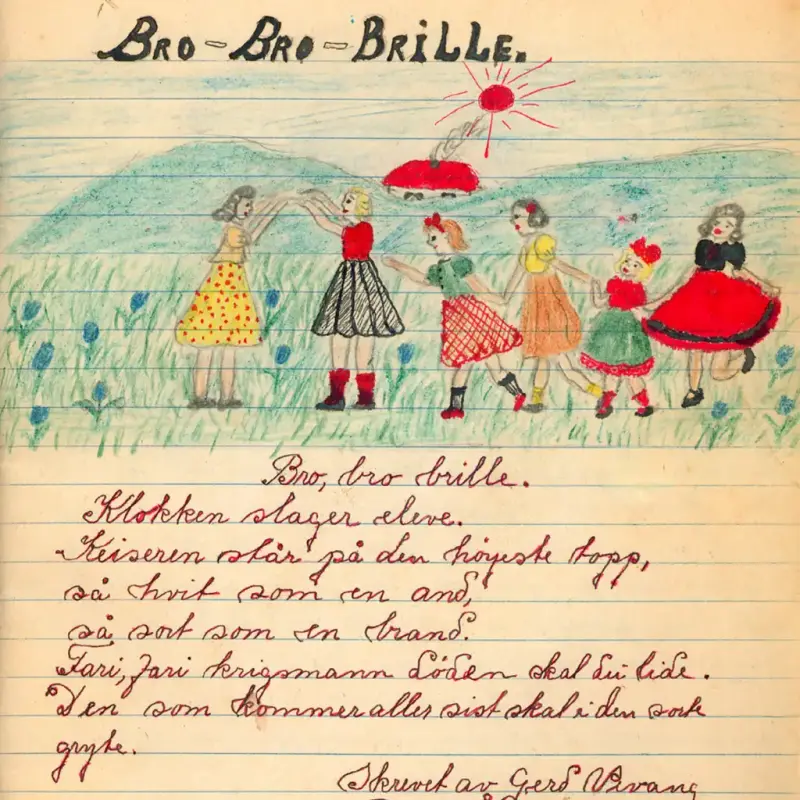 BRO-BRO-BRILLE.
Bro, bro brille.
Klokken slager eleve.
Keiseren står på den höyeste topp,
så hvit som en and,
så sort som en brand.
Fari, fari krigsmann döden skal du lide.
Den som kommer aller sist skal i den sorte
gryte.
Skrevet av Gerd Vevang